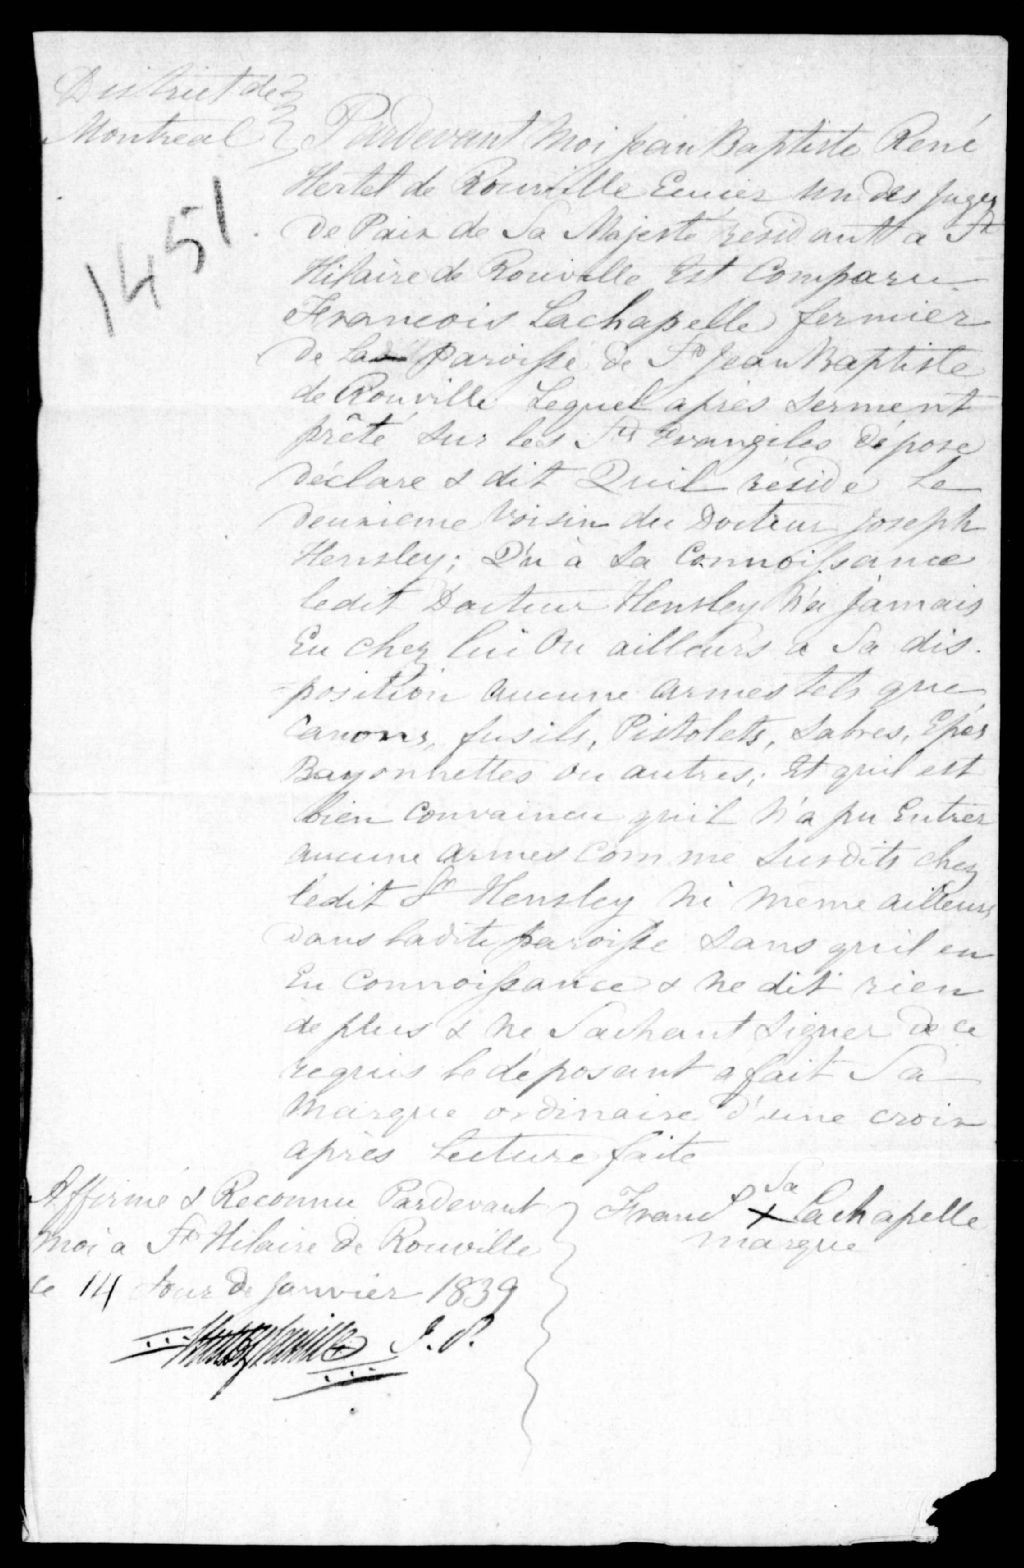 District de
Montreal
1451
Pardevant Moi Jean Baptiste René
Hertel de Rouville Ecuier un des Juges
de Paix de Sa Majesté residantt a St
Hilaire de Rouville Est Comparu
Francois Lachapelle fermier
de la paroisse de St Jean Baptiste
de Rouville Lequel après serment
prêté sur les Sts Evangiles dépose
déclare & dit Quil réside le
deuxieme Voisin du Docteur Joseph
Hensley; Qu'à sa Connoissance
ledit Docteur Hensley n'a jamais
Eu chez lui Ou ailleurs a Sa dis-
position aucune armes tels que
Canons, fusils, Pistolets, Sabres, Epés
Bayonnettes ou autres; Et quil est
bien Convaincu quil n'a pu Entrer
aucune armes comme susdits chez
ledit Sr Hensley ni meme ailleurs
dans ladite paroisse sans quil en
Eu Connoissance & ne dit rien
de plus & ne Sachant signer de ce
requis le déposant a fait Sa
Marque ordinaire d'une croix
après Lecture faite
Affirmé & Reconnu Pardevant
moi a St Hilaire de Rouville
ce 14 Jour de Janvier 1839
J. P.
Frans Sa X Lachapelle
marque